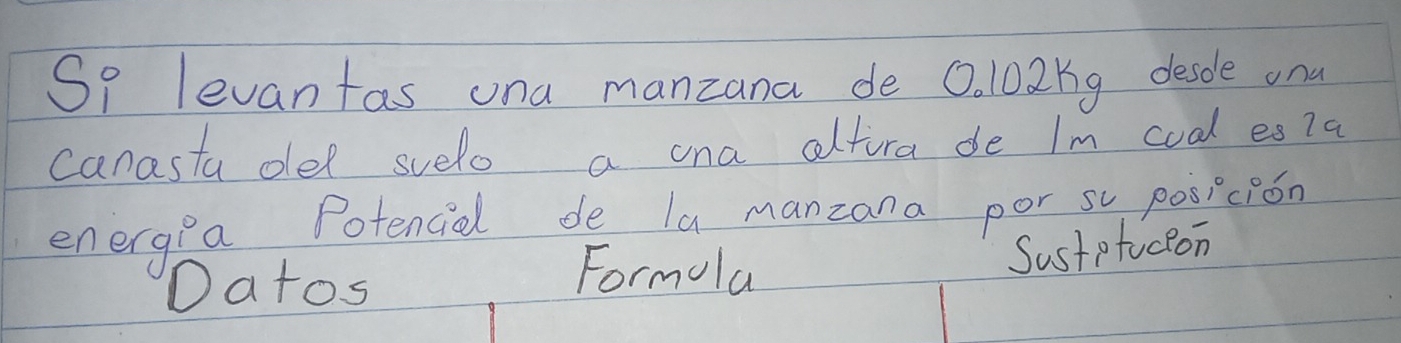 Si levantas una manzana de 0.102Kg desde una
canasta del suelo a una altura de 1m cual es la
energia Potencial de la manzana por su posición
Datos Formula Sustitución